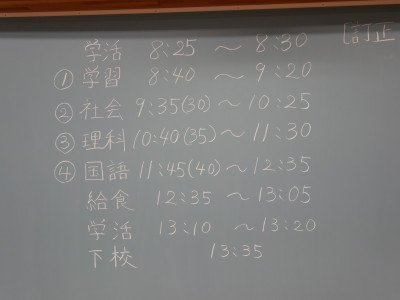 学活 8:25 ～ 8:30 [訂正
① 学習 8:40 ～ 9:20
② 社会 9:35(30) ～ 10:25
③ 理科 10:40(35) ～ 11:30
④ 国語 11:45(40) ～ 12:35
給食 12:35 ～ 13:05
学活 13:10 ～ 13:20
下校 13:35